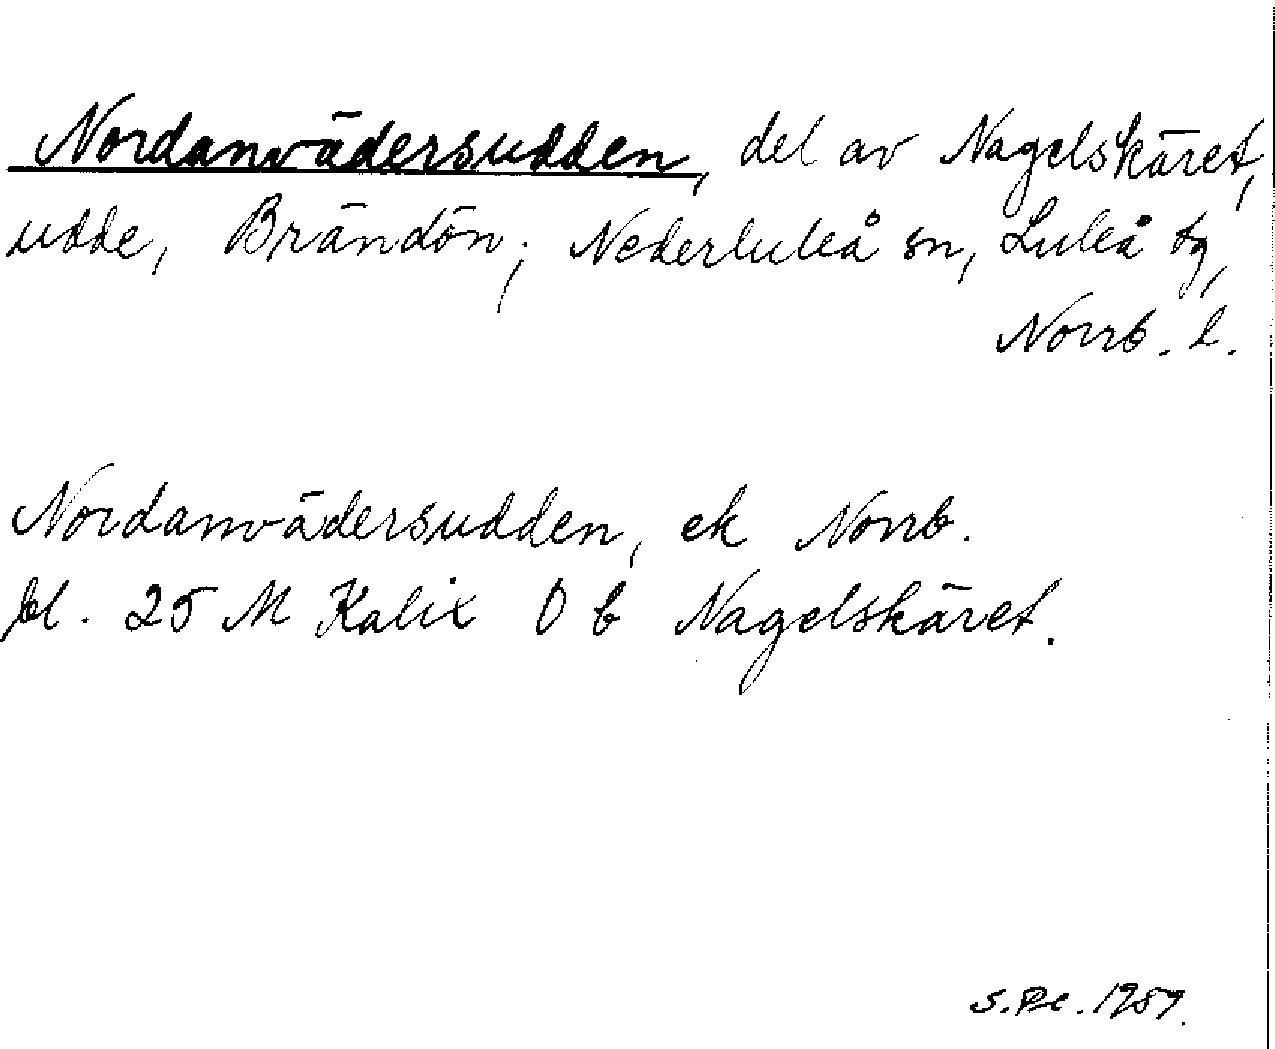 Nordanvädersudden, del av Nagelskäret,
udde, Brändön; Nederluleå sn, Luleå tg,
Norrb. l.
Nordanvädersudden, ek Norrb.
bl. 25 M Kalix O b Nagelskäret.
S.Pe. 1957.